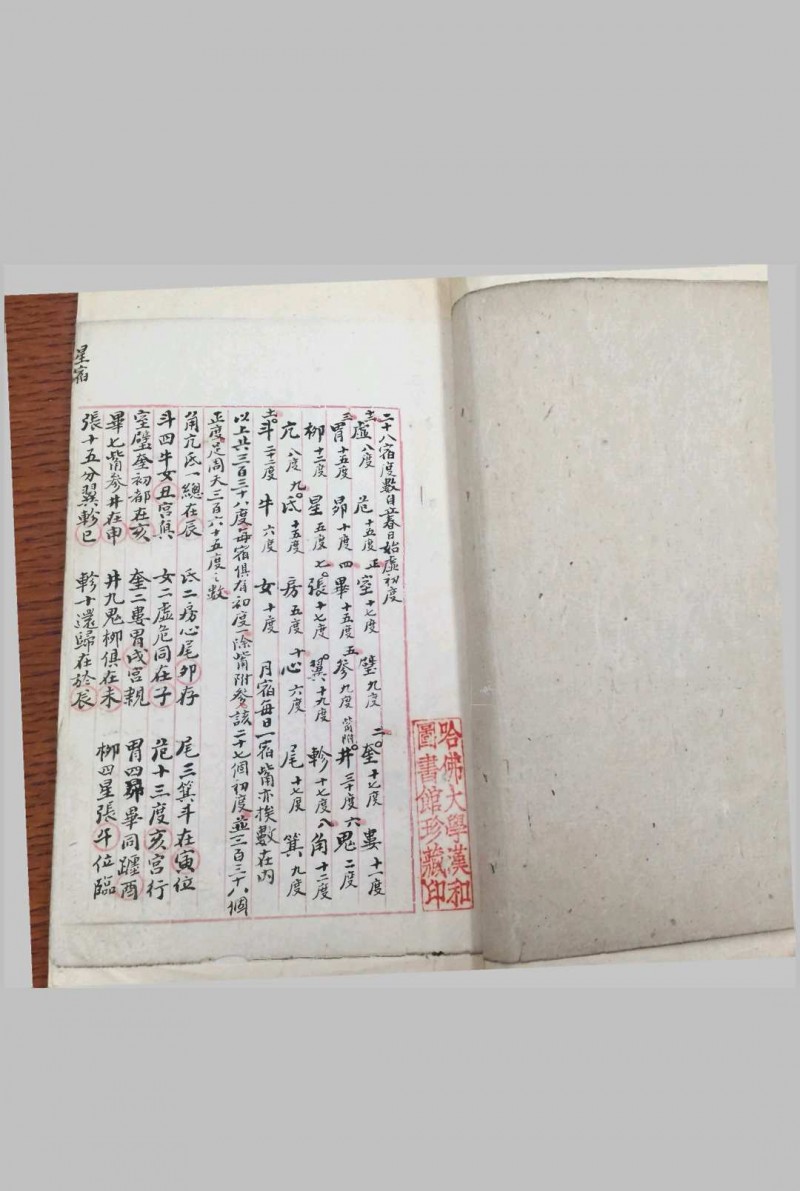 二十八宿度數自立春日始虛初度
十二虛八度 危十五度 正室十七度 壁九度 二奎十七度 婁十一度
三胃十五度 昴十度 四畢十五度 五參九度 觜附 井三十度 六鬼二度
柳十二度 星五度 七張十七度 翼十九度 軫十七度 八角十二度
亢八度 九氐十五度 房五度 十心六度 尾十七度 箕九度
十一斗二十二度 牛六度 女十度 月宿每日一宿觜亦挨數在內
以上共三百三十八度每宿俱有初度一除觜附參該二十七個初度並三百三十八個
正度足周天三百六十五度之數
角亢氐一總在辰 氐二房心尾卯存 尾三箕斗在寅位
斗四牛女丑宮真 女二虛危同在子 危十三度亥宮行
室壁奎初都在亥 奎二婁胃戌宮親 胃四昴畢同躔酉
畢七觜參井在申 井九鬼柳俱在未 柳四星張午位臨
張十五分翼軫巳 軫十還歸在於辰
星宿
哈佛大學漢和
圖書館珍藏印